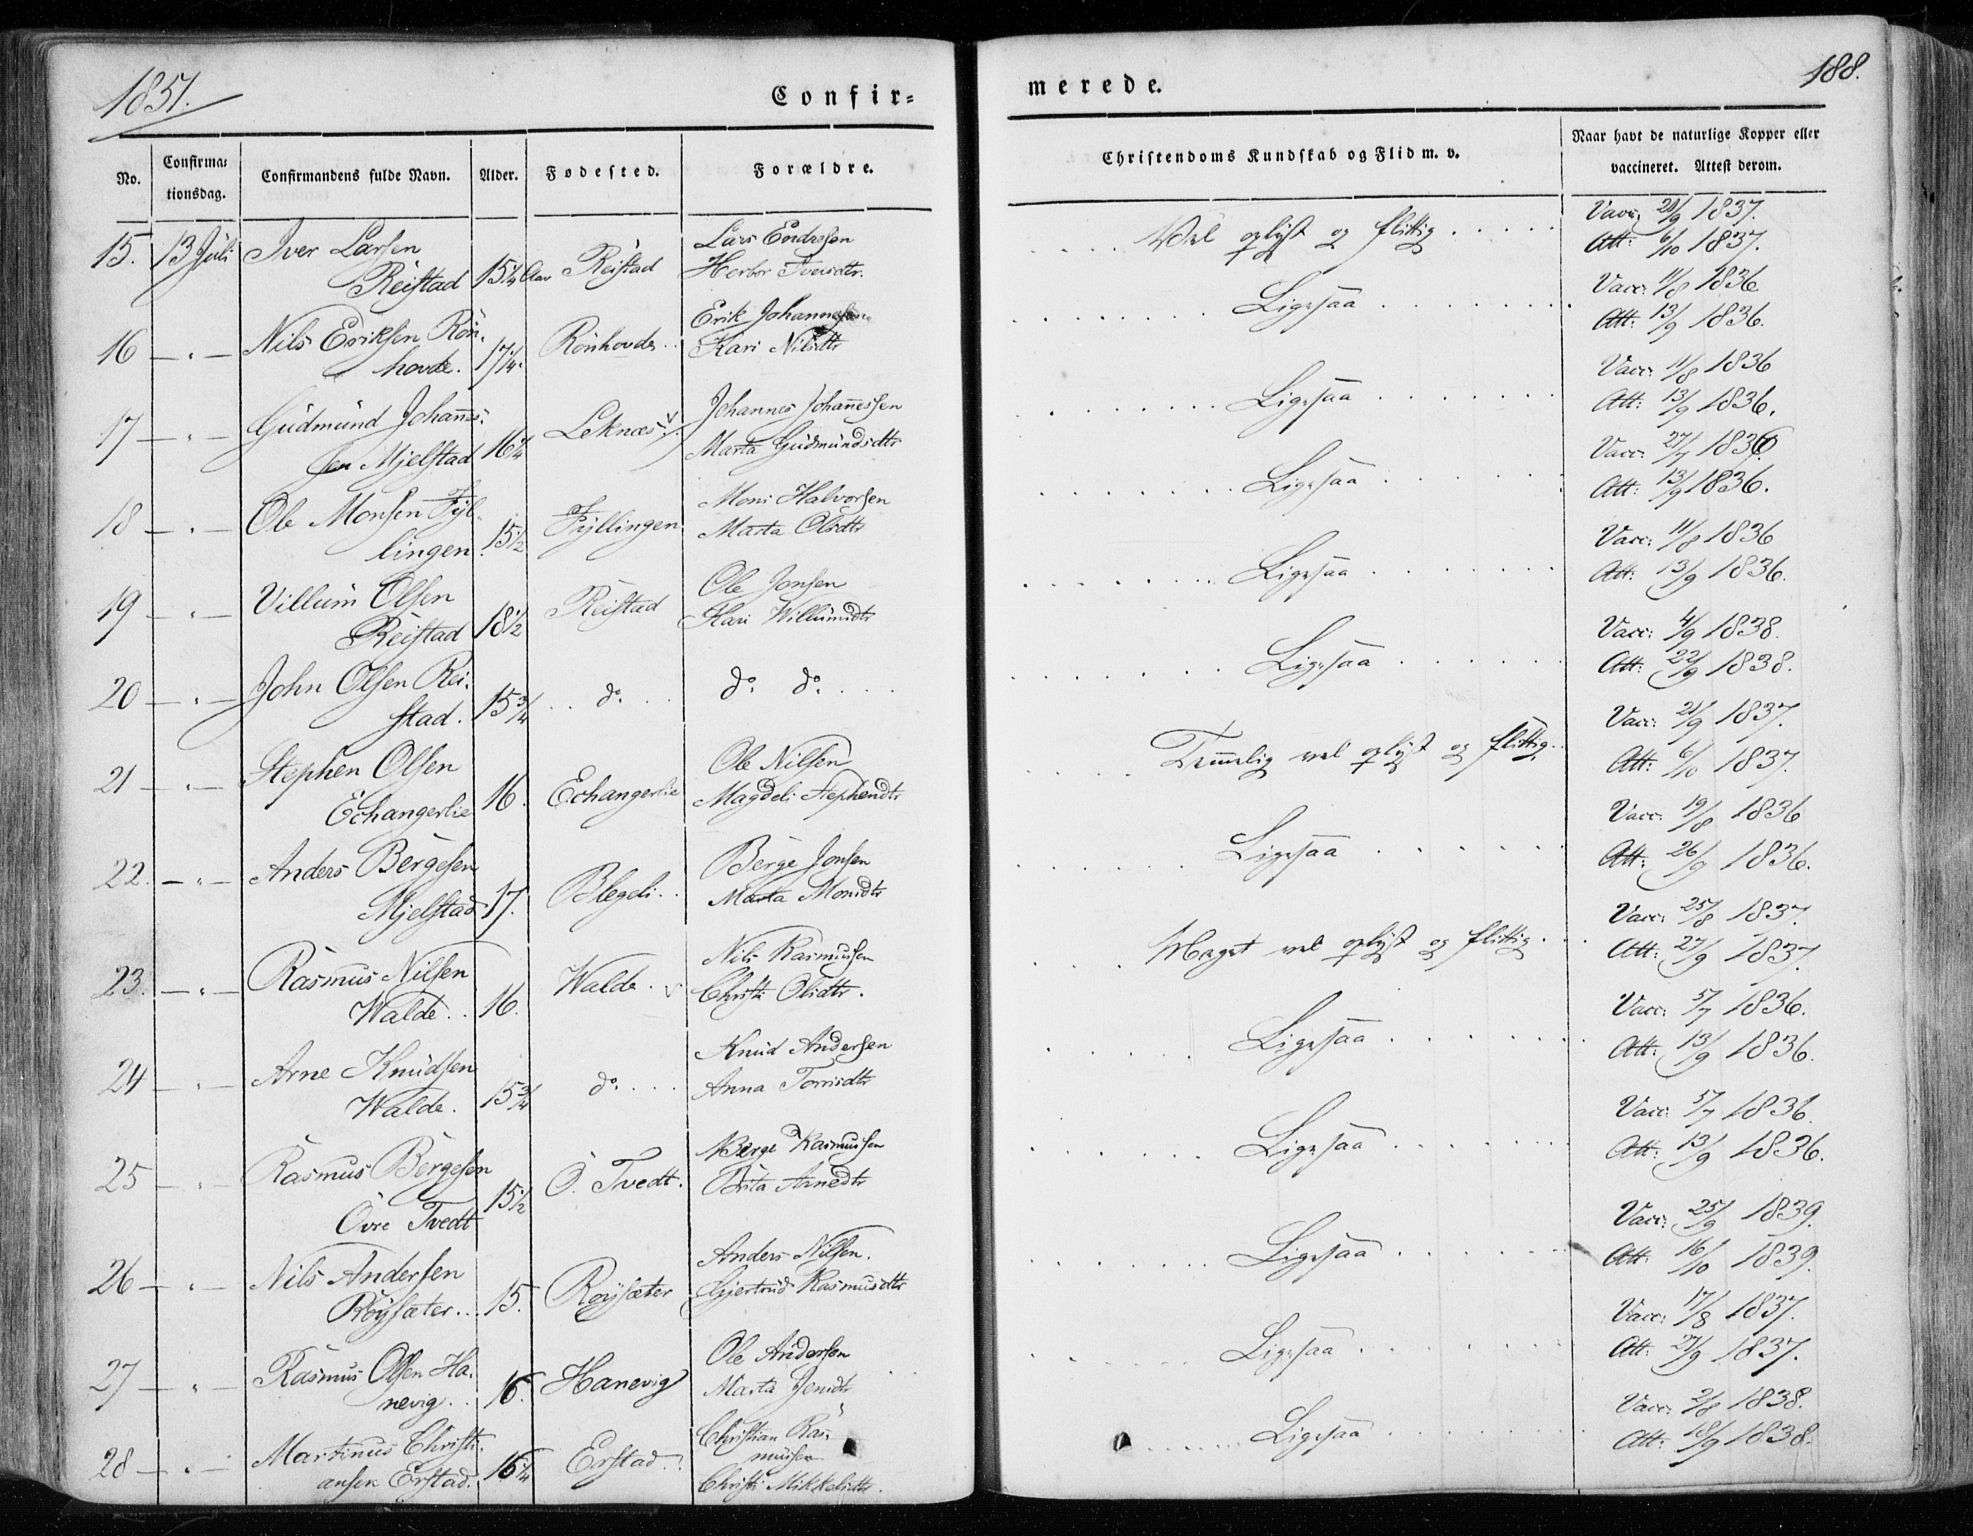 1851.
188.
Confir-
merede.
No.
Confirma-
tionsdag.
Confirmandens fulde Navn.
Alder.
Fødested.
Forældre.
Christendoms Kundskab og Flid m. v.
Naar havt de naturlige Kopper eller
vaccineret. Attest derom.
15. 13 Juli Iver Larsen Lars Endresen Vel oplyst og flittig Vacc: 21/9 1837.
Reistad 15 1/4 Aar Reistad Herbor Iversdtr. Att: 6/10 1837.
16 — " — Nils Eriksen Rön- Erik Johannesen Ligesaa Vacc: 11/8 1836
hovde. 17 1/4 Rönhovde Kari Nilsdtr Att: 13/9 1836.
17 — " — Gudmund Johannes- Johannes Johannessen Ligesaa Vacc: 11/8 1836
sen Mjelstad 16 1/4 Leknæs Marta Gudmundsdtr Att: 13/9 1836.
18 — " — Ole Monsen Fyl- Mons Halvorsen Ligesaa Vacc: 27/7 1836
lingen 15 1/2 Fyllingen Marta Olsdtr Att: 13/9 1836.
19 — " — Villum Olsen Ole Jonsen Ligesaa Vacc: 11/8 1836
Reistad 18 1/2 Reistad Kari Willumsdtr Att: 13/9 1836.
20 — " — John Olsen Rei- do. do. do. Ligesaa Vacc: 4/9 1838.
stad. 15 3/4 Att: 22/9 1838.
21 — " — Stephen Olsen Ole Nilsen Temmelig vel oplyst og flittig. Vacc: 21/9 1837.
Echangerlie 16. Echangerlie Magdeli Stephensdtr Att: 6/10 1837.
22. — " — Anders Bergesen Berge Jonsen Ligesaa Vacc: 19/8 1836
Mjelstad 17. Blegeli Marta Monsdtr Att: 26/9 1836.
23. — " — Rasmus Nilsen Nils Rasmussen Meget vel oplyst og flittig Vacc: 25/8 1837.
Walde 16. Walde Christi Olsdtr. Att: 27/9 1837.
24 — " — Arne Knudsen Knud Andersen Ligesaa Vacc: 5/7 1836.
Walde. 15 3/4 do. Anna Torrisdtr Att: 13/9 1836.
25 — " — Rasmus Bergesen Berge Rasmussen Ligesaa Vacc: 5/7 1836.
Övre Tvedt 15 1/2 Ö. Tvedt. Brita Arnedtr Att: 13/9 1836.
26 — " — Nils Andersen Anders Nilsen. Ligesaa Vacc: 25/9 1839.
Röysæter 15. Röysæter Gjertrud Rasmusdtr Att: 16/10 1839.
27 — " — Rasmus Olsen Ha- Ole Andersen Ligesaa Vacc: 17/8 1837.
nevig 16. Hanevig Marta Jensdtr Att: 27/9 1837.
28 — " — Martinus Christi- Christian Ras- Ligesaa Vacc: 2/8 1838.
ansen Erstad. 16 1/4 Erstad mussen Att: 18/9 1838.
Christi Mikkelsdtr.